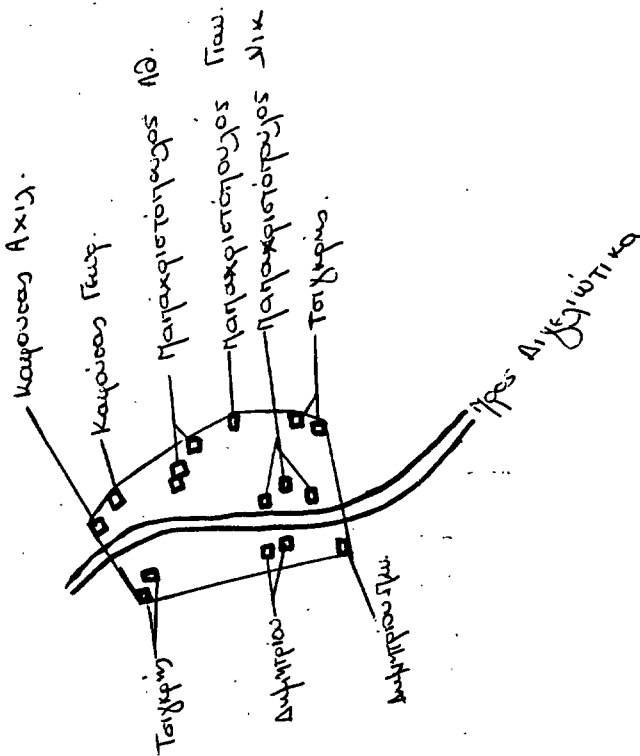 Καφούσας Αχιλ.
Καφούσας Γεωρ.
Παπαχριστόπουλος Αθ.
Παπαχριστόπουλος Γιαν.
Παπαχριστόπουλος Νικ
Τσιγκρής.
Προς Διγελιώτικα
Τσιγκρής
Δημητρίου
Δημητρίου